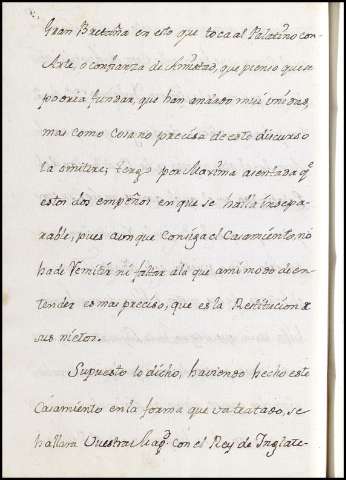 Gran Bretaña en esto que toca al Palatino con
Arte, o confianza de Amistad, que pienso que se
podria fundar, que han andado mui unidas,
mas como cosa no precisa de este discurso
la omitire; tengo por Maxima asentada q.e
estos dos empeños en que se halla insepa-
rable, pues aunque consiga el Casamiento, no
ha de remitir ni faltar a la que a mi modo de en-
tender es mas preciso, que es la Restitucion
sus nietos.
Supuesto lo dicho, haviendo hecho este
Casamiento en la forma que va tratado, se
hallara Vuestra Mag.d con el Rey de Inglate-